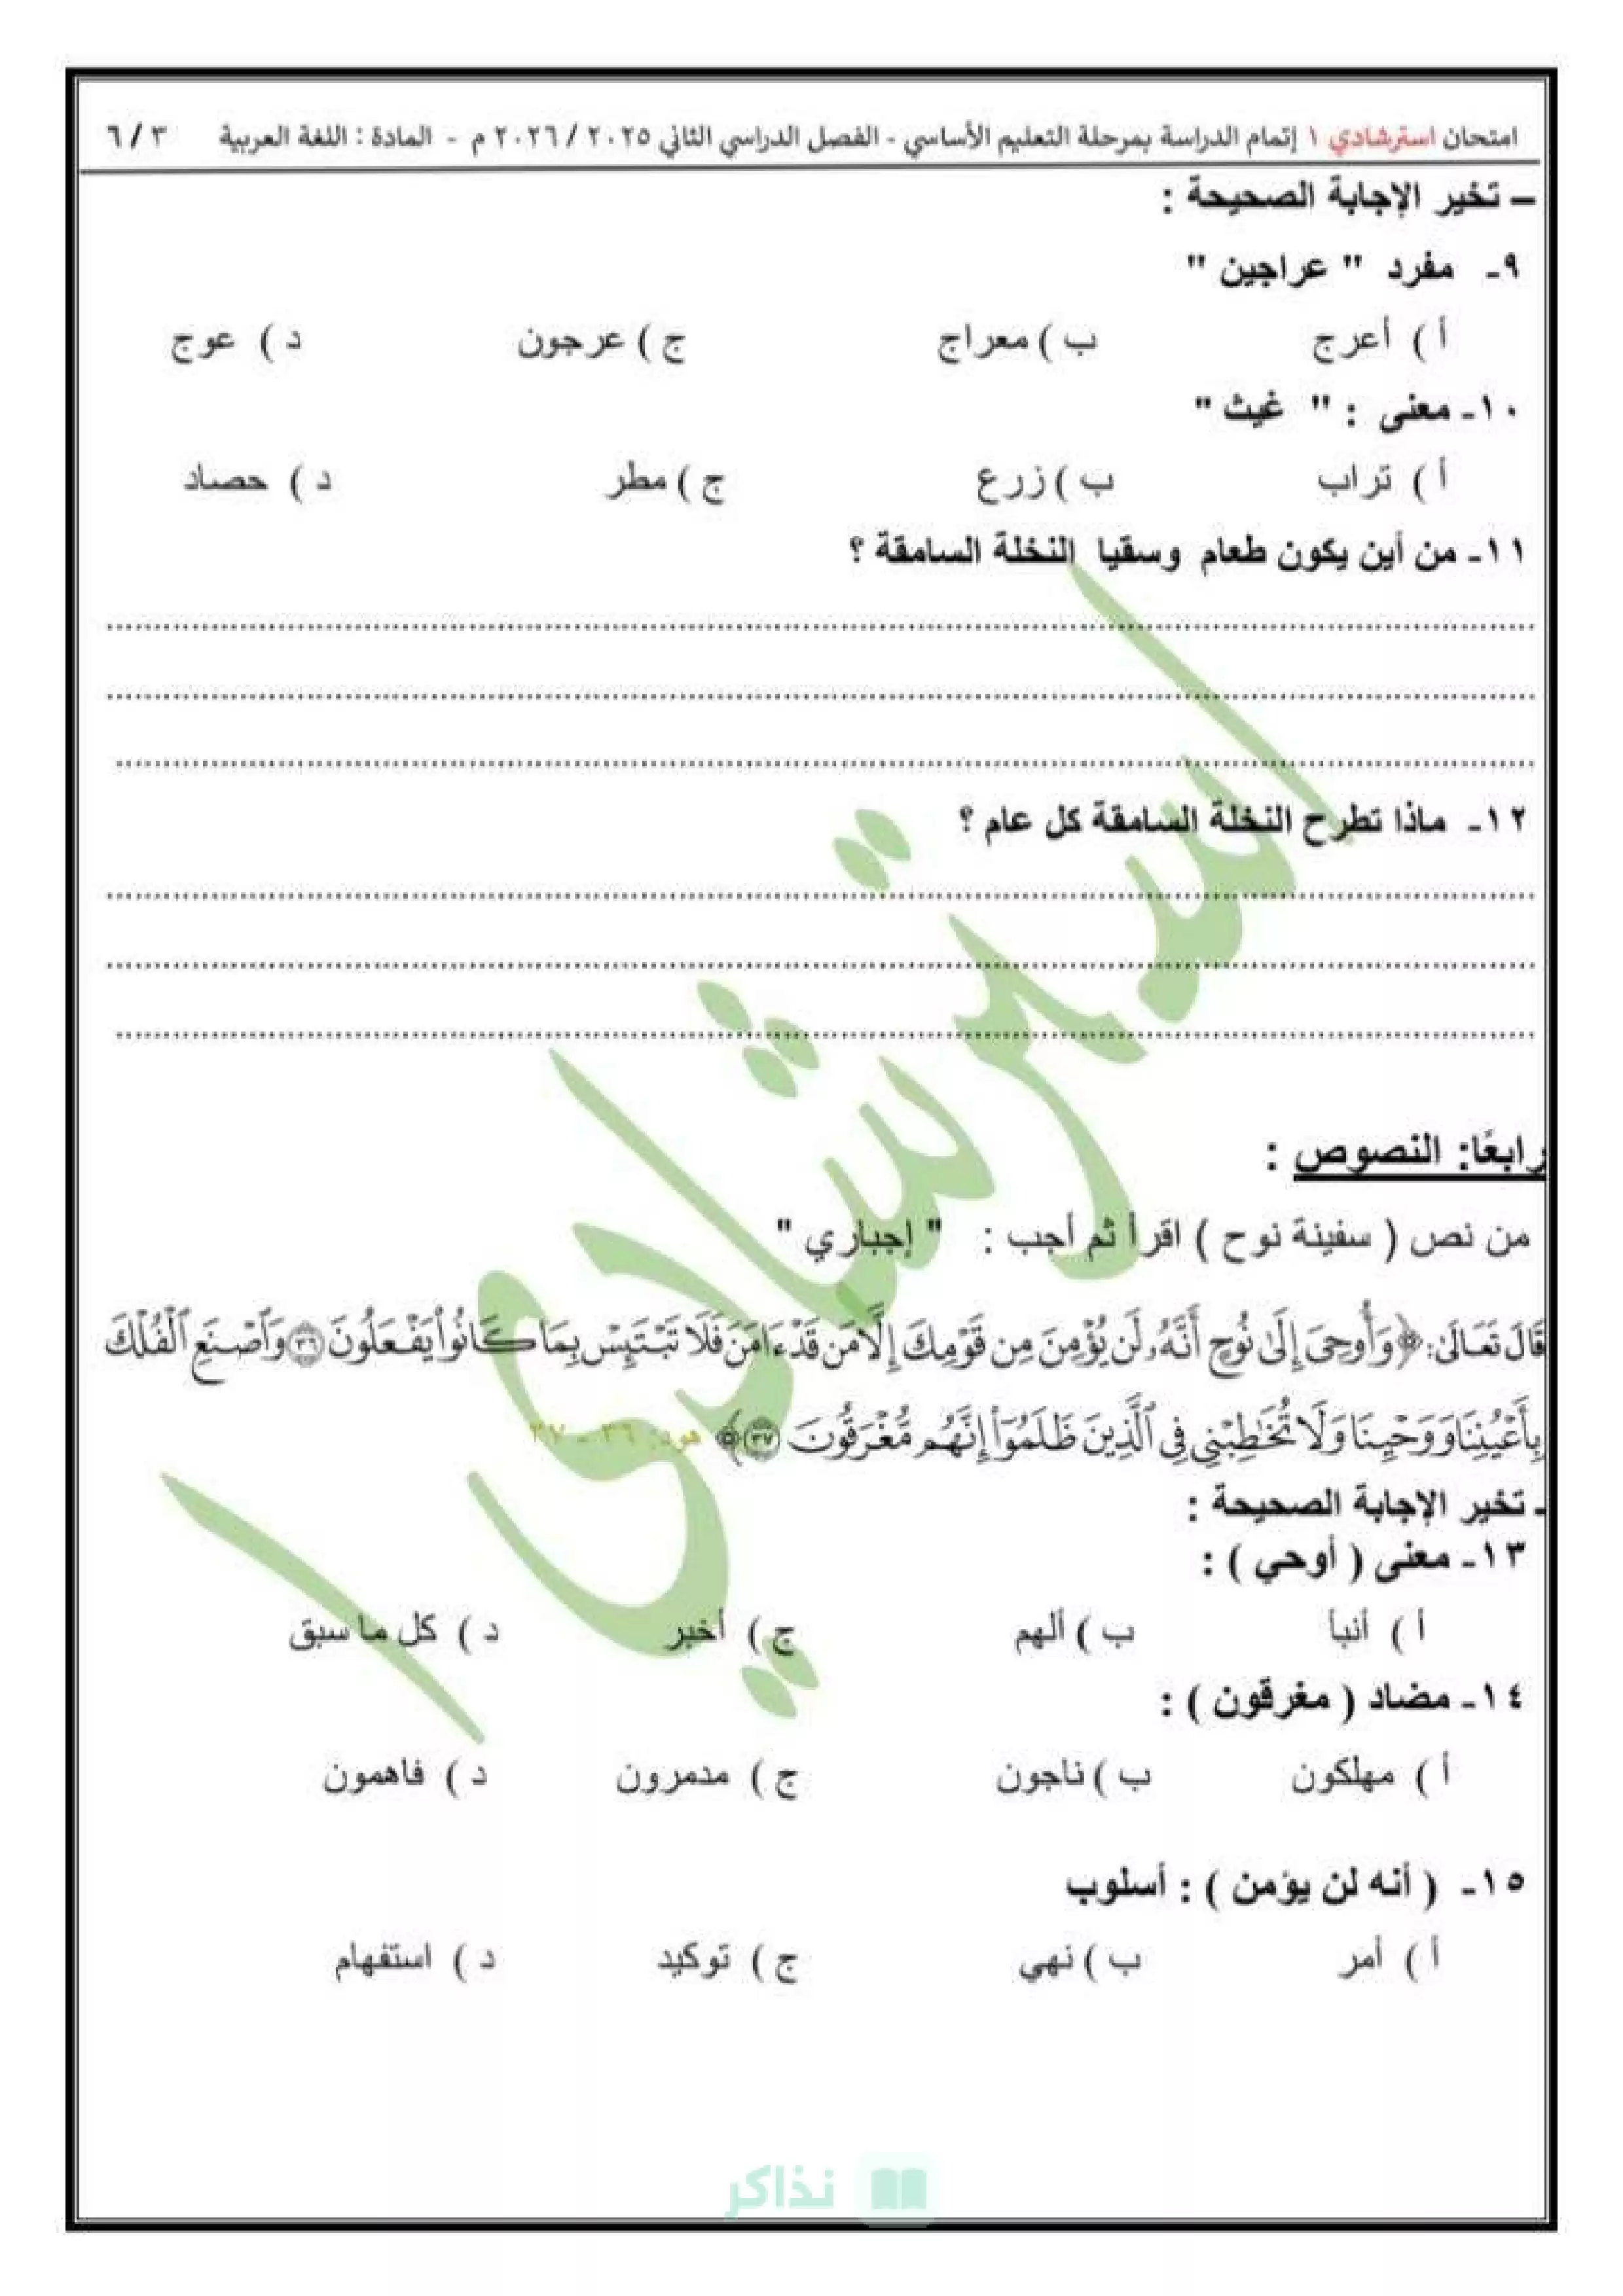 امتحان استرشادي ١ إتمام الدراسة بمرحلة التعليم الأساسي - الفصل الدراسي الثاني ٢٠٢٥ / ٢٠٢٦ م - المادة : اللغة العربية ٣ / ٦
– تخير الإجابة الصحيحة :
٩- مفرد " عراجين "
أ ) أعرج ب ) معراج ج ) عرجون د ) عوج
١٠- معنى : " غيث "
أ ) تراب ب ) زرع ج ) مطر د ) حصاد
١١- من أين يكون طعام وسقيا النخلة السامقة ؟
١٢- ماذا تطرح النخلة السامقة كل عام ؟
رابعًا: النصوص :
من نص ( سفينة نوح ) اقرأ ثم أجب : " إجباري "
قَالَ تَعَالَىٰ: ﴿وَأُوحِيَ إِلَىٰ نُوحٍ أَنَّهُۥ لَن يُؤْمِنَ مِن قَوْمِكَ إِلَّا مَن قَدْ ءَامَنَ فَلَا تَبْتَئِسْ بِمَا كَانُوا۟ يَفْعَلُونَ ٣٦ وَٱصْنَعِ ٱلْفُلْكَ
بِأَعْيُنِنَا وَوَحْيِنَا وَلَا تُخَـٰطِبْنِى فِى ٱلَّذِينَ ظَلَمُوٓا۟ إِنَّهُم مُّغْرَقُونَ ٣٧﴾ هود: ٣٦ - ٣٧
- تخير الإجابة الصحيحة :
١٣- معنى ( أوحي ) :
أ ) أنبأ ب ) ألهم ج ) أخبر د ) كل ما سبق
١٤- مضاد ( مغرقون ) :
أ ) مهلكون ب ) ناجون ج ) مدمرون د ) فاهمون
١٥- ( أنه لن يؤمن ) : أسلوب
أ ) أمر ب ) نهي ج ) توكيد د ) استفهام
استرشادي ١
نذاكر